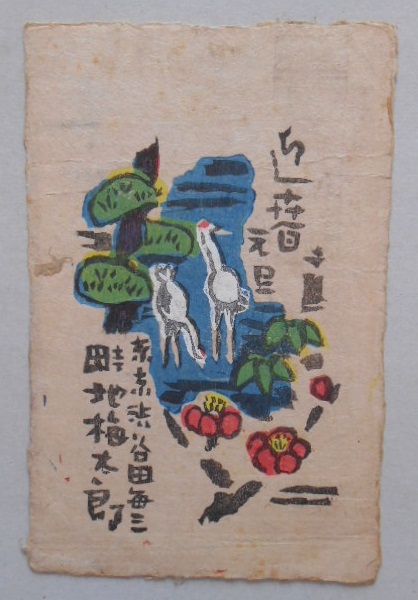 迎萅
元旦
東京渋谷田毎三
畦地梅太郎